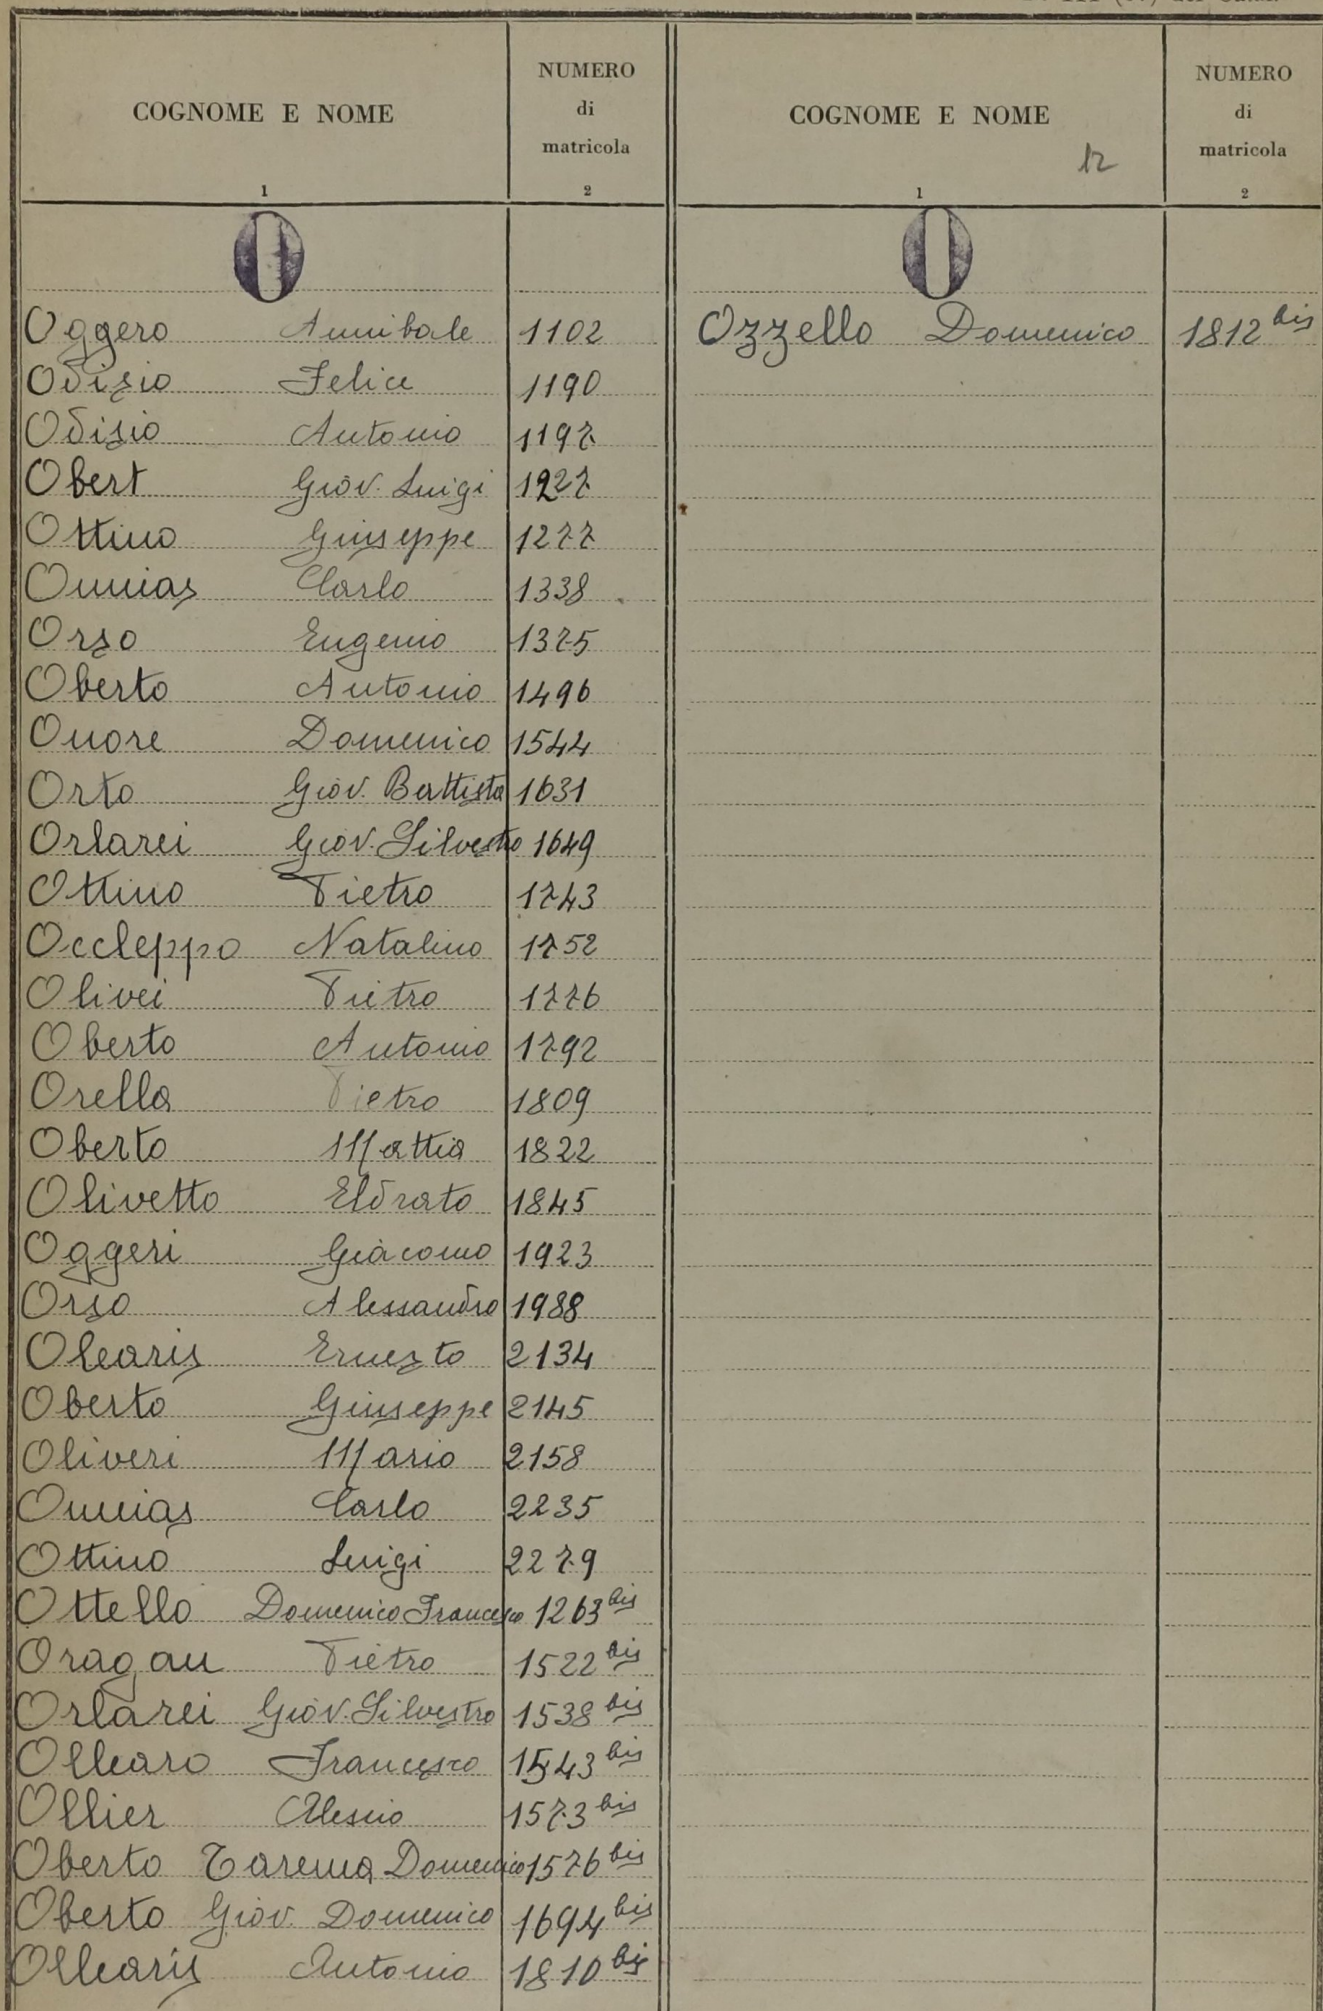 COGNOME E NOME
NUMERO
di
matricola
1
2
O
Oggero Annibale 1102
Odisio Felice 1190
Odisio Antonio 1197
Obert Giov. Luigi 1227
Ottino Giuseppe 1277
Omnias Carlo 1338
Orso Eugenio 1375
Oberto Antonio 1496
Onore Domenico 1544
Orto Giov. Battista 1631
Orlarei Giov. Silvestro 1649
Ottino Pietro 1743
Occleppo Natalino 1752
Olivei Pietro 1776
Oberto Antonio 1792
Orella Pietro 1809
Oberto Mattia 1822
Olivetto Eldrato 1845
Oggeri Giacomo 1923
Orso Alessandro 1988
Olearis Ernesto 2134
Oberto Giuseppe 2145
Oliveri Mario 2158
Omnias Carlo 2235
Ottino Luigi 2279
Ottello Domenico Francesco 1263 bis
Oragan Pietro 1522 bis
Orlarei Giov. Silvestro 1538 bis
Ollearo Francesco 1543 bis
Ollier Alessio 1573 bis
Oberto Tarena Domenico 1576 bis
Oberto Giov. Domenico 1694 bis
Ollearis Antonio 1810 bis
COGNOME E NOME
12
NUMERO
di
matricola
1
2
O
Ozzello Domenico 1812 bis